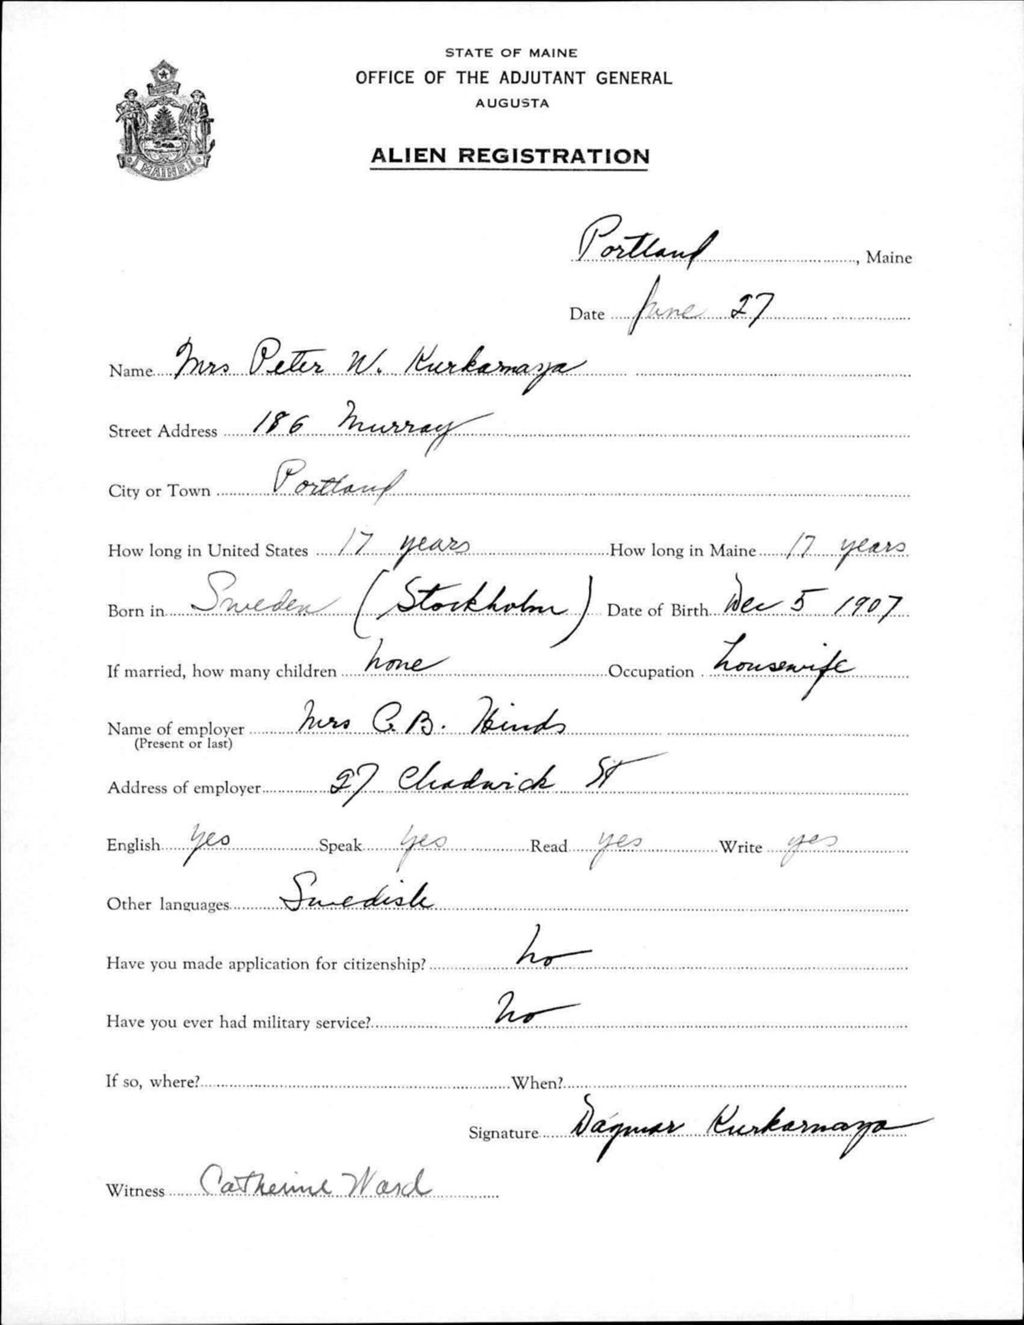 STATE OF MAINE
OFFICE OF THE ADJUTANT GENERAL
AUGUSTA
ALIEN REGISTRATION
MAINE
Portland, Maine
Date June 27
Name Mrs Peter W. Kurkamaya
Street Address 186 Murray
City or Town Portland
How long in United States 17 years How long in Maine 17 years
Born in Sweden (Stockholm) Date of Birth Dec 5 1907
If married, how many children none Occupation housewife
Name of employer Mrs C. B. Hinds
(Present or last)
Address of employer 27 Chadwick St
English Yes Speak yes Read yes Write yes
Other languages Swedish
Have you made application for citizenship? no
Have you ever had military service? No
If so, where? When?
Signature Dagmar Kurkamaya
Witness Catherine Ward